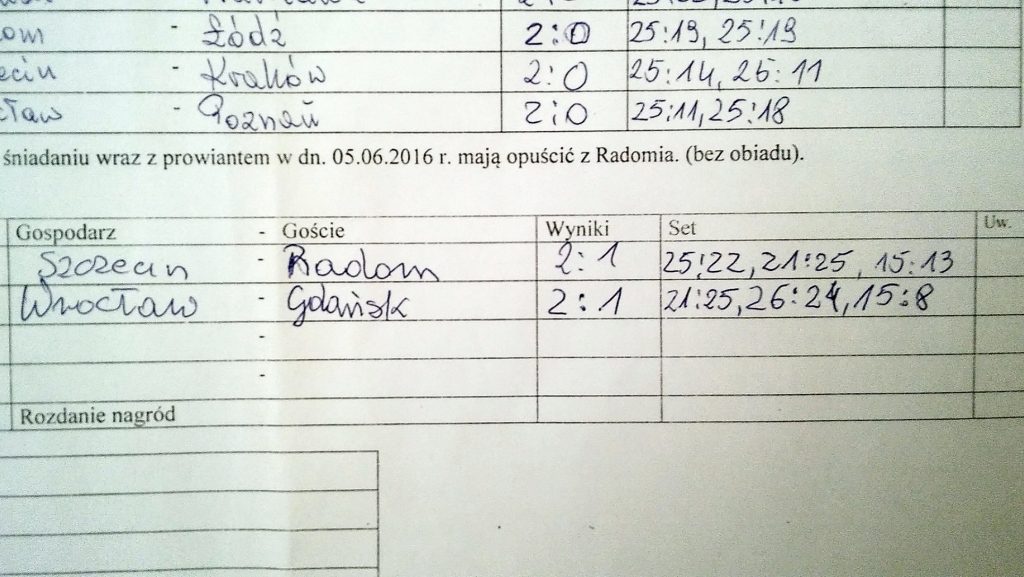 - Łódź 2:0 25:19, 25:19
- Kraków 2:0 25:14, 25:11
- Poznań 2:0 25:11, 25:18
śniadaniu wraz z prowiantem w dn. 05.06.2016 r. mają opuścić z Radomia. (bez obiadu).
Gospodarz - Goście Wyniki Set Uw.
Szczecin - Radom 2:1 25:22, 21:25, 15:13
Wrocław - Gdańsk 2:1 21:25, 26:24, 15:8
-
-
Rozdanie nagród